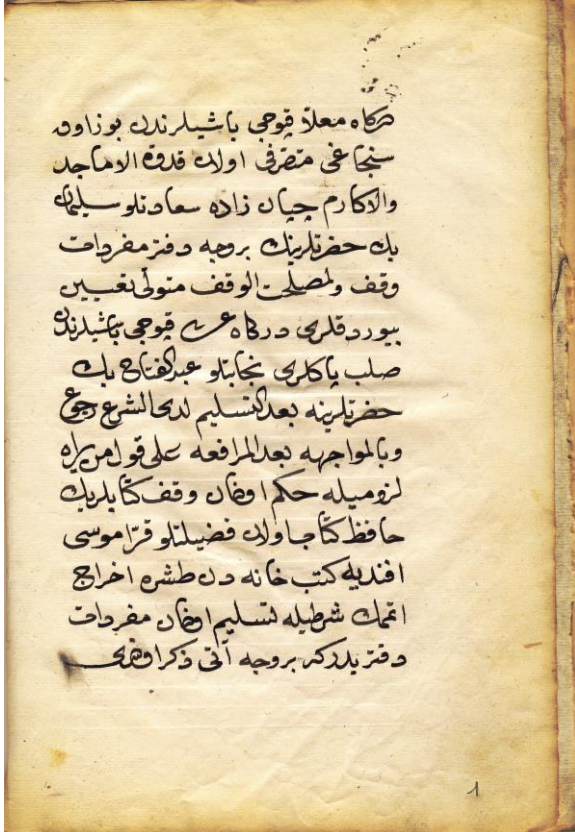 دركاه معلا قپوجی باشیلرندن بوزاوق
سنجاغی متصرفی اولان قدوة الاماجد
والاكارم چپان زاده سعادتلو سلیمان
بك حضرتلرینك بروجه دفتر مفردات
وقف ولمصلحت الوقف متولی تعیین
بیوردقلری دركاه عالی قپوجی باشیلرندن
صلب پاكلری نجابتلو عبدالفتاح بك
حضرتلرینه بعدالتسلیم لدی الشرع رجوع
وبالمواجهه بعدالمرافعه علی قول من یراه
لزومیله حكم اولنان وقف كتابلرینك
حافظ كتابی اولان فضیلتلو قرا موسی
افندیه كتب خانه دن طشره اخراج
اتمك شرطیله تسلیم اولنان مفردات
دفتریدركه بروجه آتی ذكر اولنور
1